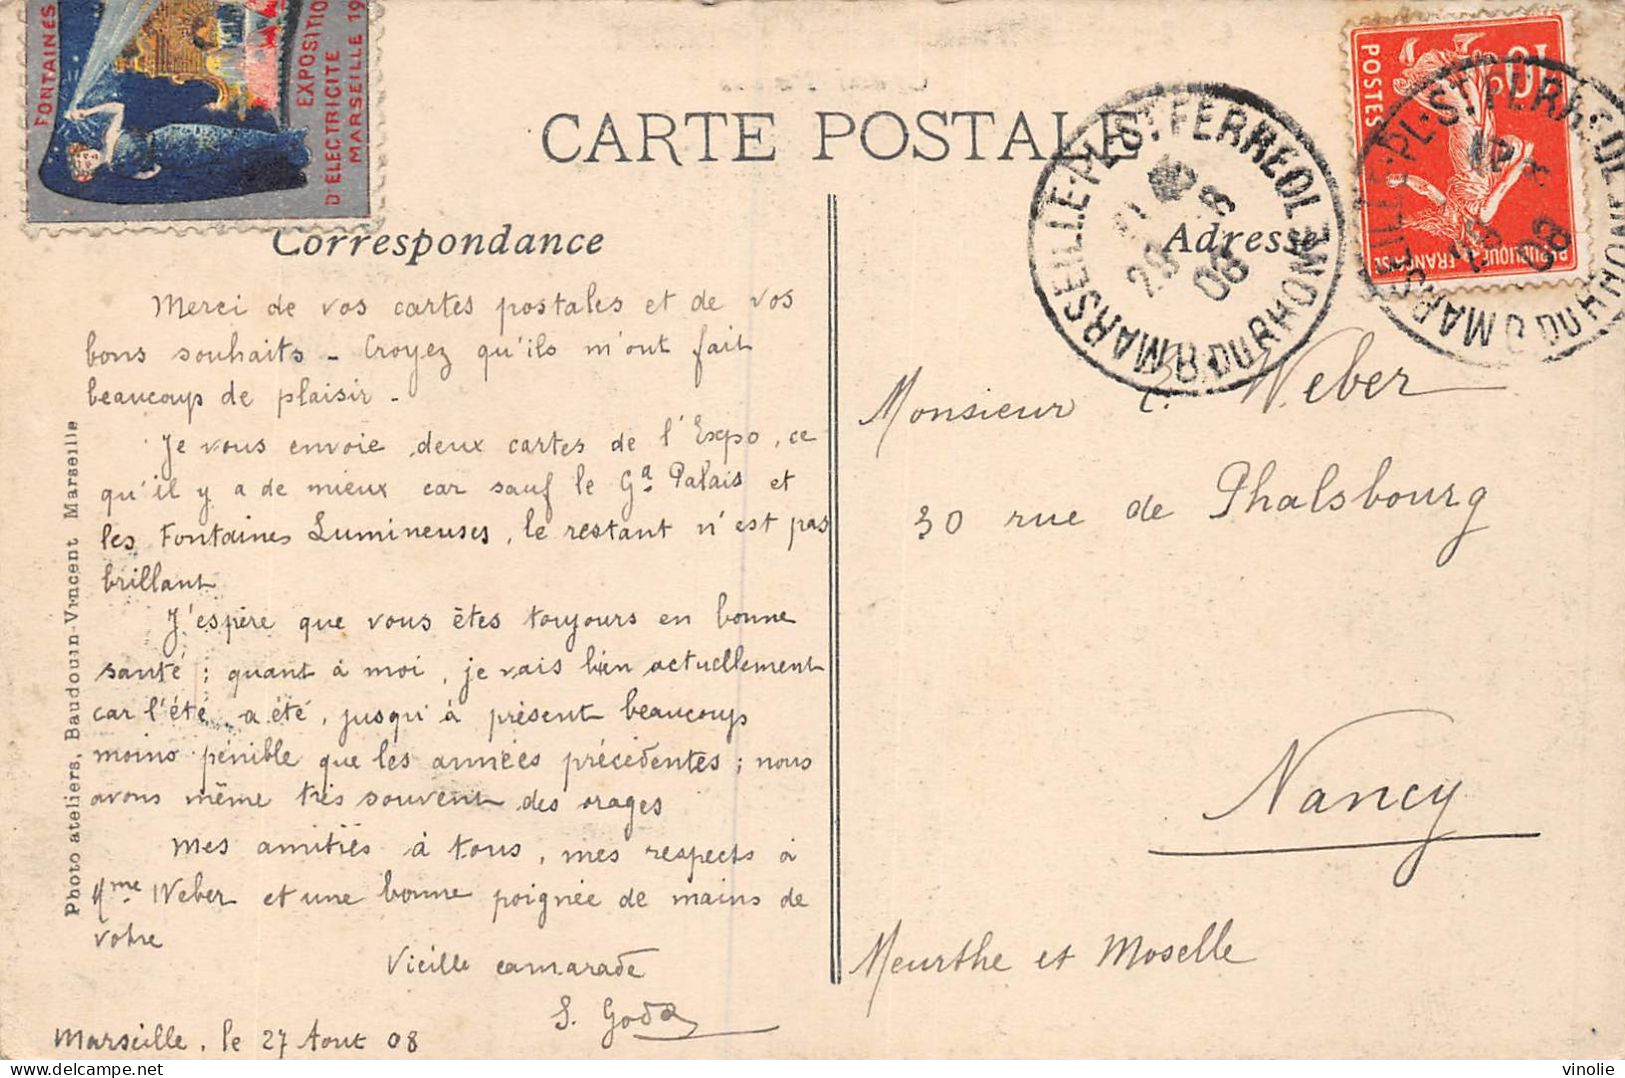 FONTAINES
EXPOSITIO
D'ELECTRICITE
MARSEILLE 19
CARTE POSTALE
POSTES
10
REPUBLIQUE FRANÇAISE
MARSEILLE-PL-ST FERREOL
28 8
08
BCHES DU RHONE
MARSEILLE-PL-ST FERREOL
08
DU RHONE
Correspondance
Adresse
Merci de vos cartes postales et de vos
bons souhaits - Croyez qu'ils m'ont fait
beaucoup de plaisir -
Je vous envoie deux cartes de l'Expo, ce
qu'il y a de mieux car sauf le Gd Palais et
les Fontaines Lumineuses, le restant n'est pas
brillant
J'espère que vous êtes toujours en bonne
santé ; quant à moi, je vais bien actuellement
car l'été a été, jusqu'à présent beaucoup
moins pénible que les années précédentes ; nous
avons même très souvent des orages
Mes amitiés à tous, mes respects à
Mme Weber et une bonne poignée de mains de
votre
Vieille camarade
Marseille, le 27 Aout 08
Photo ateliers, Baudouin-Vincent Marseille
Monsieur Weber
30 rue de Phalsbourg
Nancy
Meurthe et Moselle
vinolie